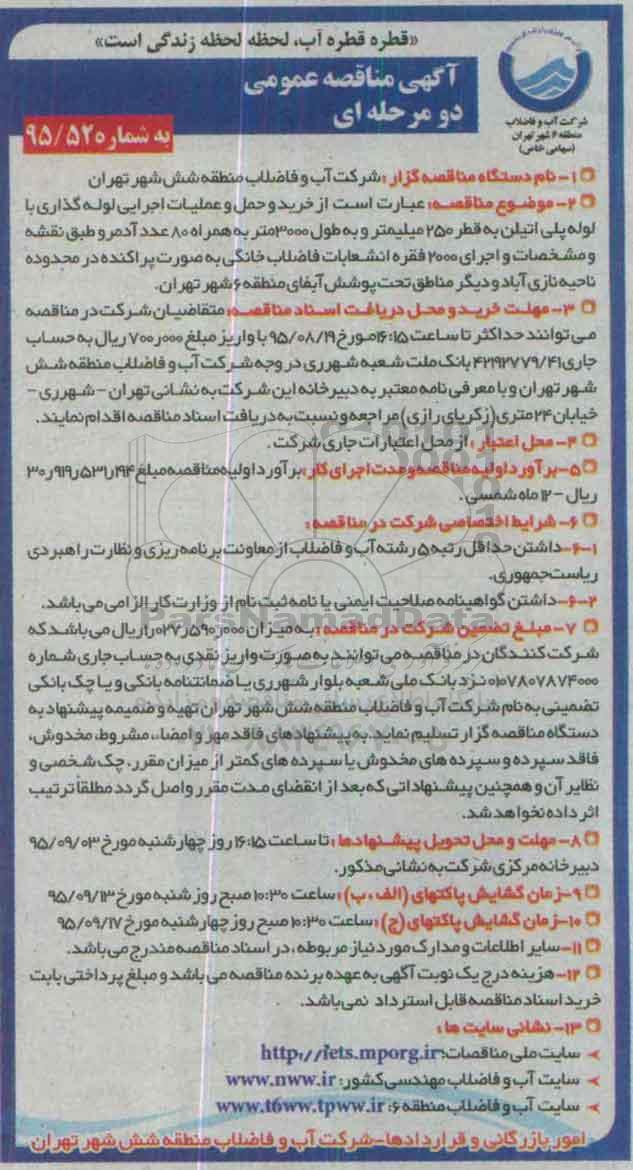 «قطره قطره آب، لحظه لحظه زندگی است»
آگهی مناقصه عمومی
دو مرحله ای
به شماره ۹۵/۵۲
شرکت آب و فاضلاب
منطقه ۶ شهر تهران
(سهامی خاص)
۱- نام دستگاه مناقصه گزار: شرکت آب و فاضلاب منطقه شش شهر تهران
۲- موضوع مناقصه: عبارت است از خرید و حمل و عملیات اجرایی لوله گذاری با
لوله پلی اتیلن به قطر ۲۵۰ میلیمتر و به طول ۳۰۰۰متر به همراه ۸۰ عدد آدمرو طبق نقشه
و مشخصات و اجرای ۲۰۰۰ فقره انشعابات فاضلاب خانگی به صورت پراکنده در محدوده
ناحیه نازی آباد و دیگر مناطق تحت پوشش آبفای منطقه ۶ شهر تهران.
۳- مهلت خرید و محل دریافت اسناد مناقصه: متقاضیان شرکت در مناقصه
می توانند حداکثر تا ساعت ۱۶:۱۵ مورخ ۹۵/۰۸/۱۹ با واریز مبلغ ۷۰۰٫۰۰۰ ریال به حساب
جاری ۴۲۱۹۲۷۷۹/۴۱ بانک ملت شعبه شهرری در وجه شرکت آب و فاضلاب منطقه شش
شهر تهران و با معرفی نامه معتبر به دبیرخانه این شرکت به نشانی تهران - شهرری -
خیابان ۲۴متری(زکریای رازی) مراجعه و نسبت به دریافت اسناد مناقصه اقدام نمایند.
۴- محل اعتبار: از محل اعتبارات جاری شرکت.
۵- برآورد اولیه مناقصه و مدت اجرای کار: برآورد اولیه مناقصه مبلغ ۳۰٫۹۱۹٫۵۳۱٫۱۹۴
ریال - ۱۲ ماه شمسی.
۶- شرایط اختصاصی شرکت در مناقصه:
۶-۱- داشتن حداقل رتبه ۵ رشته آب و فاضلاب از معاونت برنامه ریزی و نظارت راهبردی
ریاست جمهوری.
۶-۲- داشتن گواهینامه صلاحیت ایمنی یا نامه ثبت نام از وزارت کار الزامی می باشد.
۷- مبلغ تضمین شرکت در مناقصه: به میزان ۱٫۰۲۷٫۵۹۰٫۰۰۰ ریال می باشد که
شرکت کنندگان در مناقصه می توانند به صورت واریز نقدی به حساب جاری شماره
۰۱۰۷۸۰۷۸۷۴۰۰۰ نزد بانک ملی شعبه بلوار شهرری یا ضمانتنامه بانکی و یا چک بانکی
تضمینی به نام شرکت آب و فاضلاب منطقه شش شهر تهران تهیه و ضمیمه پیشنهاد به
دستگاه مناقصه گزار تسلیم نماید. به پیشنهادهای فاقد مهر و امضاء، مشروط، مخدوش،
فاقد سپرده و سپرده های مخدوش یا سپرده های کمتر از میزان مقرر، چک شخصی و
نظایر آن و همچنین پیشنهاداتی که بعد از انقضای مدت مقرر واصل گردد مطلقاً ترتیب
اثر داده نخواهد شد.
۸- مهلت و محل تحویل پیشنهادها: تا ساعت ۱۶:۱۵ روز چهارشنبه مورخ ۹۵/۰۹/۰۳
دبیرخانه مرکزی شرکت به نشانی مذکور.
۹- زمان گشایش پاکتهای (الف، ب): ساعت ۱۰:۳۰ صبح روز شنبه مورخ ۹۵/۰۹/۱۳
۱۰- زمان گشایش پاکتهای (ج): ساعت ۱۰:۳۰ صبح روز چهارشنبه مورخ ۹۵/۰۹/۱۷
۱۱- سایر اطلاعات و مدارک مورد نیاز مربوطه، در اسناد مناقصه مندرج می باشد.
۱۲- هزینه درج یک نوبت آگهی به عهده برنده مناقصه می باشد و مبلغ پرداختی بابت
خرید اسناد مناقصه قابل استرداد نمی باشد.
۱۳- نشانی سایت ها:
سایت ملی مناقصات: http://iets.mporg.ir
سایت آب و فاضلاب مهندسی کشور: www.nww.ir
سایت آب و فاضلاب منطقه ۶: www.t6ww.tpww.ir
امور بازرگانی و قراردادها-شرکت آب و فاضلاب منطقه شش شهر تهران
ParsNamadData